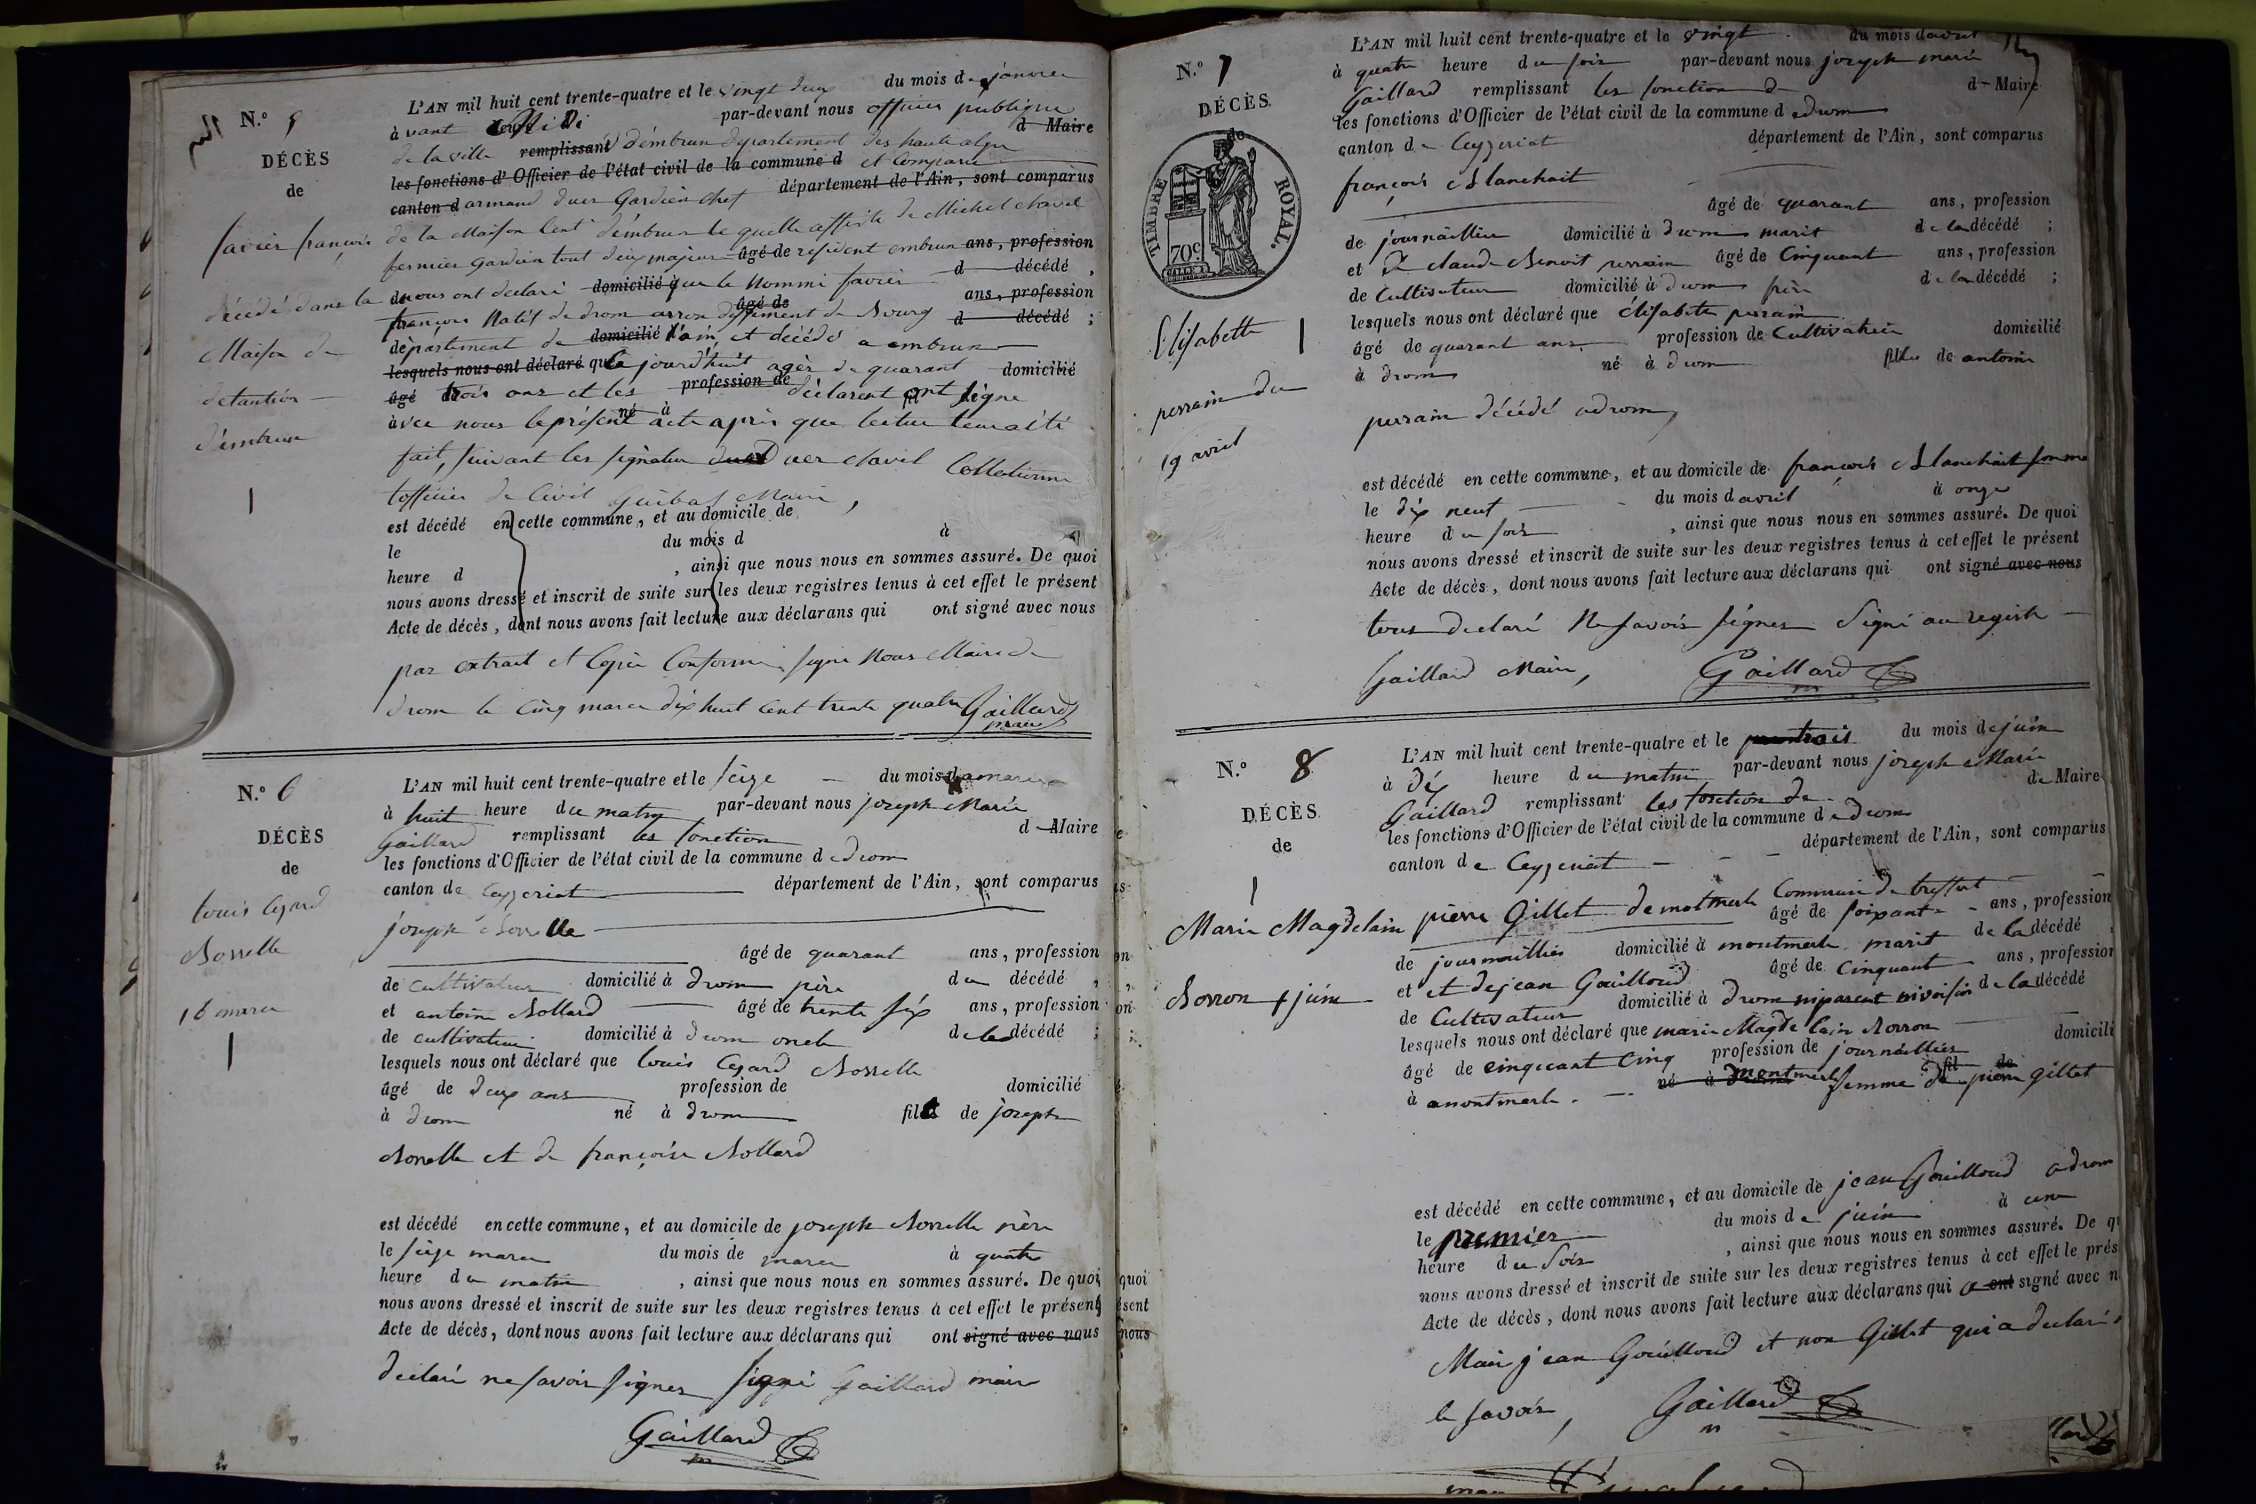 N.º 5
DÉCÈS
de
favier françois
décédé dans la
Maison de
detantion
d'embrun
L'AN mil huit cent trente-quatre et le vingt deux du mois de janvier
à vant midi par-devant nous officier publique
de la ville remplissant d'embrun departement des haute alpe d Maire
les fonctions d'Officier de l'état civil de la commune d et Comparu
canton d armand duer Gardien chef département de l'Ain, sont comparus
de la Maison Cent d'embrun le quelle assisté de Michel chavel
fermier gardien tout deux majeur âgé de resident embrun ans, profession
de nous ont declaré domicilié à que le Nommé favier d décédé,
françois Natif de drom arron dissement de Bourg âgé de ans, profession
département de domicilié l'ain, et décédé a embrun d décédé;
lesquels nous ont déclaré que ce jourd'huit agèr de quarant domicilié
âgé de trois ans et les profession de déclarent ont signe
àvec nous le présent né à acte après que lectur leur a été
fait, suivant les signatur duer chavil Collationne
l'officier de Civil Guibas Maire,
est décédé en cette commune, et au domicile de
le du mois d à
heure d , ainsi que nous nous en sommes assuré. De quoi
nous avons dressé et inscrit de suite sur les deux registres tenus à cet effet le présent
Acte de décès, dont nous avons fait lecture aux déclarans qui ont signé avec nous
par extrait et Copie Conforme, signe Nous Maire de
drom le cinq marce dix huit cent trente quatre Gaillard
maire
N.º 6
DÉCÈS
de
louis Cezard
Borrelle
16 marce
L'AN mil huit cent trente-quatre et le seize du mois de marce
à huit heure du matin par-devant nous joseph Marie
Gaillard remplissant les fonction d Maire
les fonctions d'Officier de l'état civil de la commune de drom
canton de Ceyzeriat département de l'Ain, sont comparus
joseph Borrelle
âgé de quarant ans, profession
de cultivateur domicilié à drom père du décédé,
et antoine Bollard âgé de trente six ans, profession
de cultivateur domicilié à drom oncle de la décédé;
lesquels nous ont déclaré que louis Cezard Borrelle
âgé de deux ans profession de domicilié
à drom né à drom fils de joseph
Borrelle et de françoise Bollard
est décédé en cette commune, et au domicile de joseph Borrelle père
le seize marce du mois de marce à quatre
heure du matin , ainsi que nous nous en sommes assuré. De quoi
nous avons dressé et inscrit de suite sur les deux registres tenus à cet effet le présent
Acte de décès, dont nous avons fait lecture aux déclarans qui ont signé avec nous
declaré ne savoir signer signé Gaillard maire
Gaillard
N.º 7
DÉCÈS
de
TIMBRE ROYAL.
70c
Elisabette
perrain du
19 avril
L'AN mil huit cent trente-quatre et le vingt du mois d'avril
à quatre heure du soir par-devant nous joseph marie
Gaillard remplissant les fonction d de Maire
les fonctions d'Officier de l'état civil de la commune de drom
canton de Ceyzeriat département de l'Ain, sont comparus
françois Blanchait
âgé de quarant ans, profession
de journaillier domicilié à drom marit de la décédé;
et de claude Benoit perrain âgé de Cinquant ans, profession
de Cultivateur domicilié à drom frère de la décédé;
lesquels nous ont déclaré que élisabette perrain
âgé de quarant ans profession de Cultivatrice domicilié
à drom né à drom fille de antoine
perrain décédé a drom
est décédé en cette commune, et au domicile de françois Blanchait femme
le dix neuf du mois d avril à onze
heure du soir , ainsi que nous nous en sommes assuré. De quoi
nous avons dressé et inscrit de suite sur les deux registres tenus à cet effet le présent
Acte de décès, dont nous avons fait lecture aux déclarans qui ont signé avec nous
tous declaré Ne savoir signer Signé au registre
Gaillard Maire, Gaillard
N.º 8
DÉCÈS
de
Marie Magdelain
Borron 1 juin
L'AN mil huit cent trente-quatre et le du mois de juin
à dix heure du matin par-devant nous joseph Marie
Gaillard remplissant les fonction de de Maire
les fonctions d'Officier de l'état civil de la commune de drom
canton de Ceyzeriat département de l'Ain, sont comparus
pierre Gillet de motmerle Commune de treffort
âgé de soixante ans, profession
de journaillier domicilié à montmerle marit de la décédé
et et de jean Gouilloud âgé de cinquant ans, profession
de Cultivateur domicilié à drom niparent nivoisin de la décédé
lesquels nous ont déclaré que marie Magdelain Borron
âgé de cinquant cinq profession de journaillier domicili
à amontmerle né à drom montmerle femme de fil de pierre gillet
est décédé en cette commune, et au domicile de jean Gouilloud a drom
le premier du mois de juin à une
heure du Soir , ainsi que nous nous en sommes assuré. De qu
nous avons dressé et inscrit de suite sur les deux registres tenus à cet effet le prés
Acte de décès, dont nous avons fait lecture aux déclarans qui a ont signé avec n
Mais jean Gouilloud et non Gillet qui a declaré
le savoir, Gaillard